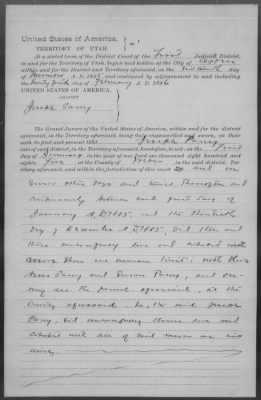 United States of America.
TERRITORY OF UTAH.
At a stated term of the District Court of the First Judicial District,
in and for the Territory of Utah, begun and holden at the City of Ogden
within and for the District and Territory aforesaid, on the day
of November A. D. 1885 and continued by adjournment to and including
the day of February A. D. 1886
UNITED STATES OF AMERICA,
AGAINST
Joseph Parry
The Grand Jurors of the United States of America, within and for the district
aforesaid, in the Territory aforesaid, being duly empaneled and sworn, on their
oath do find and present that Joseph Parry
late of said district, in the Territory of Utah aforesaid, heretofore, to wit: on the first
day of January in the year of our Lord one thousand eight hundred and
eighty four at the County of Weber in the said district, Territory
aforesaid, and within the jurisdiction of this court and on
divers other days and times thereafter and
continuously between said first day of
January A.D. 1885, and the thirtieth
day of December A.D. 1885, did then and
there unlawfully live and cohabit with
more than one woman to wit: with
Parry and Susan Parry, and
during all the period aforesaid, at the
County aforesaid, he, the said Joseph
Parry, did unlawfully claim, live and
cohabit with all of said women as his
wives.